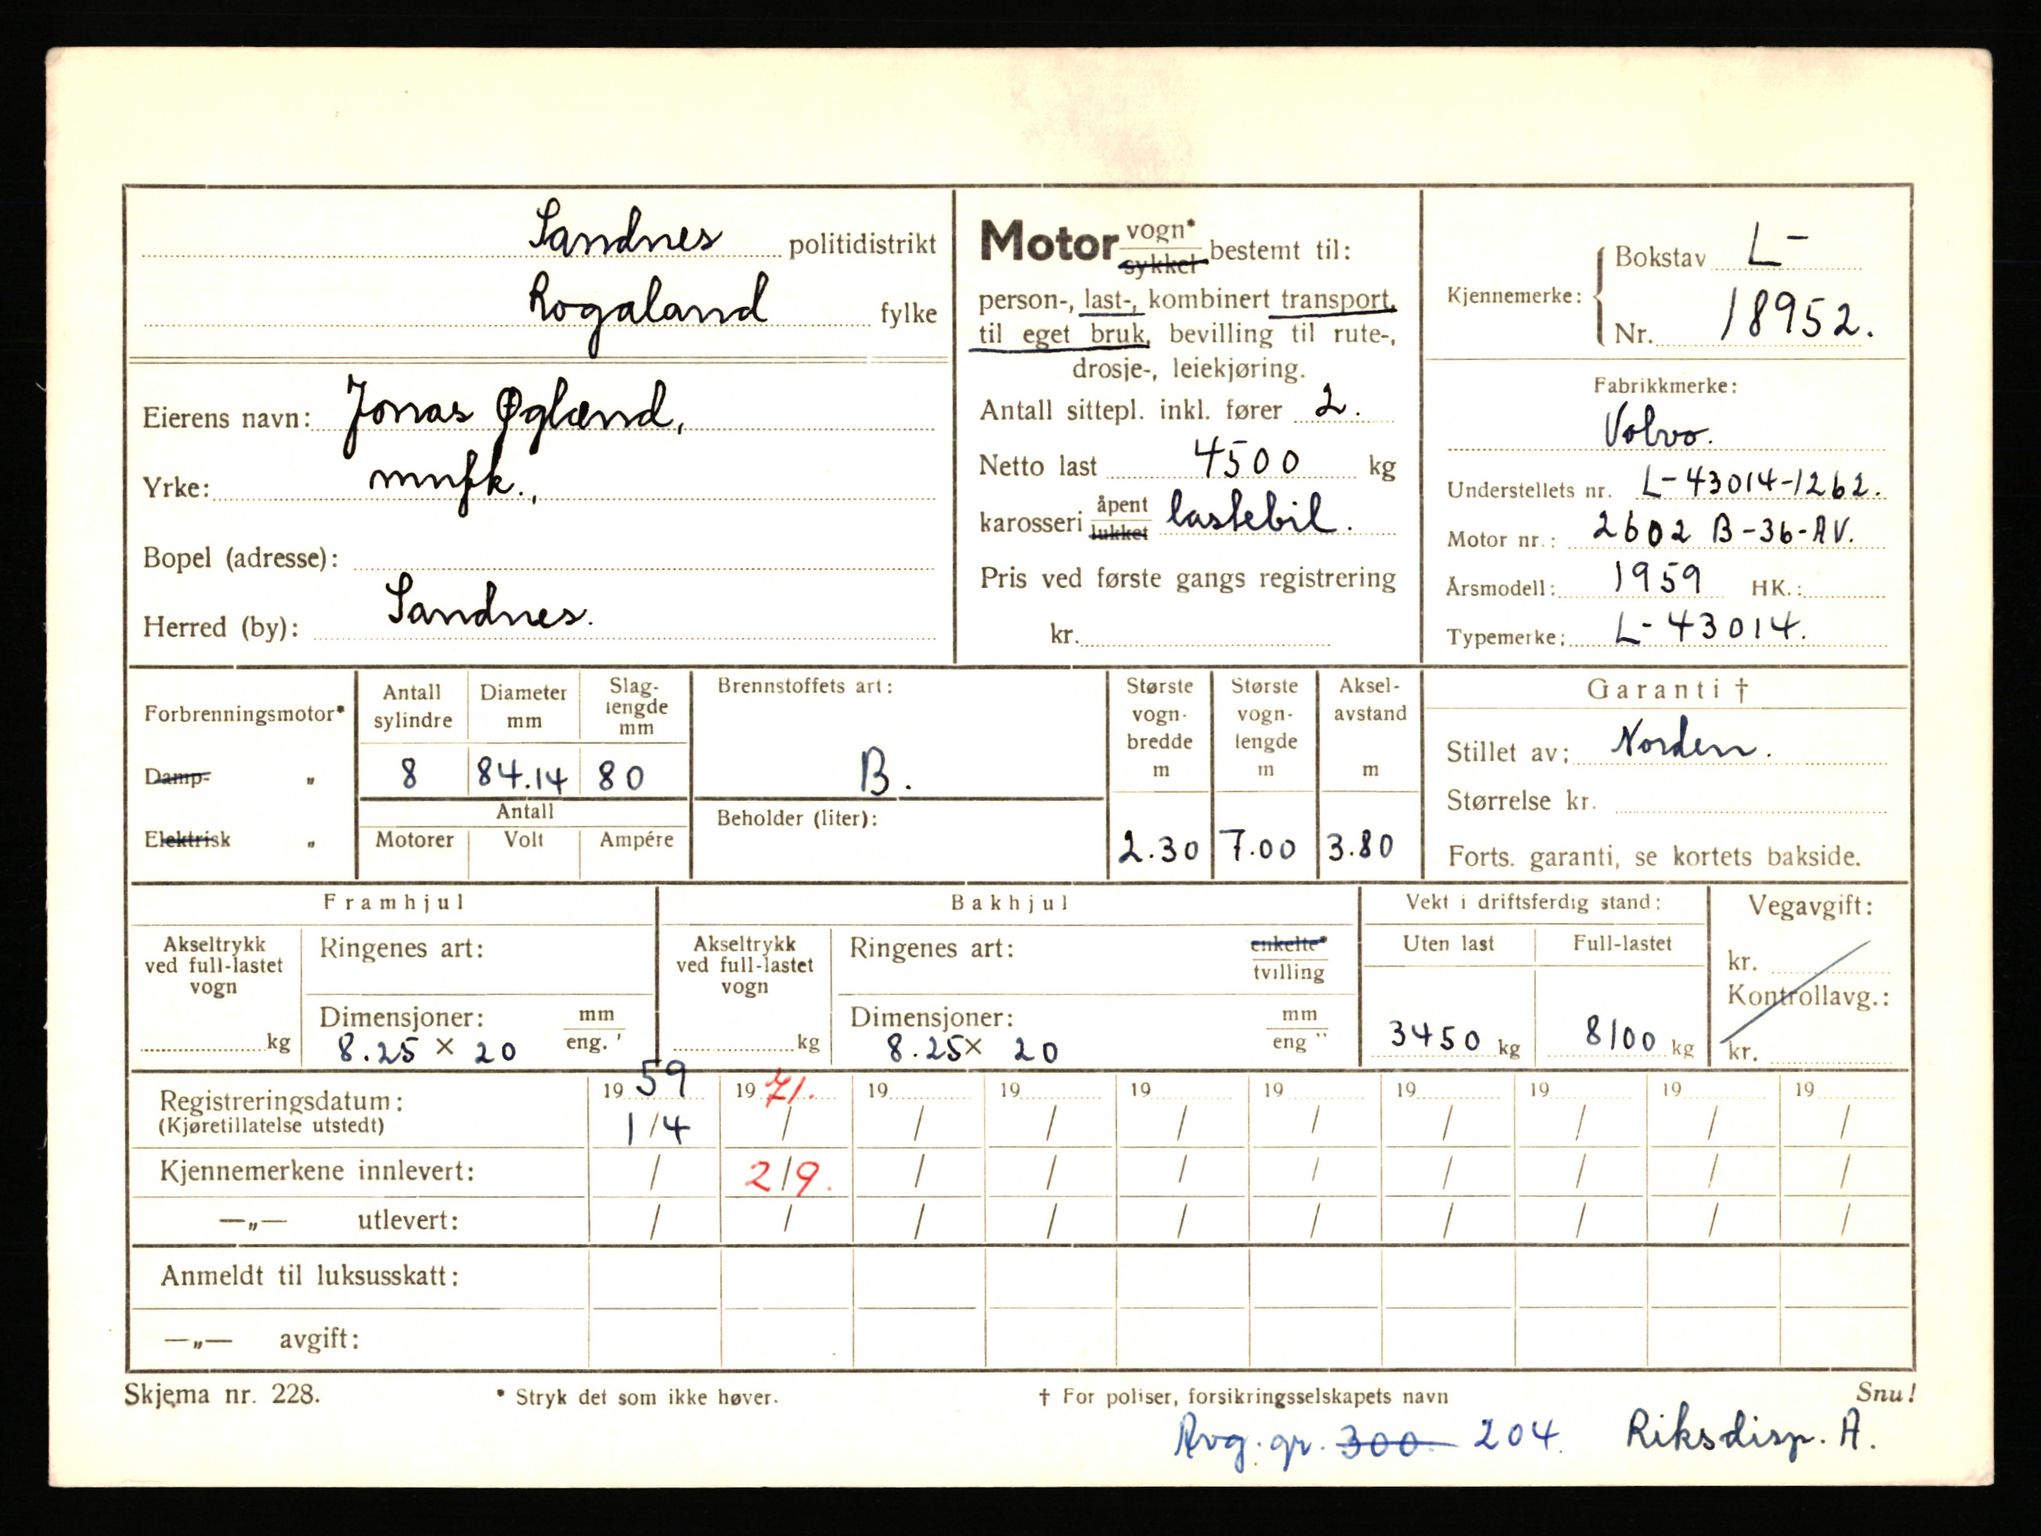 Sandnes politidistrikt
Rogaland fylke
Eierens navn: Jonas Øglænd,
Yrke: mnfk.,
Bopel (adresse):
Herred (by): Sandnes.
Motor vogn* sykkel bestemt til:
person-, last-, kombinert transport,
til eget bruk, bevilling til rute-,
drosje-, leiekjøring.
Antall sittepl. inkl. fører 2.
Netto last 4500 kg
karosseri åpent lukket lastebil.
Pris ved første gangs registrering
kr.
Kjennemerke: Bokstav L-
Nr. 18952.
Fabrikkmerke:
Volvo.
Understellets nr. L-43014-1262.
Motor nr.: 2602 B-36-AV.
Årsmodell: 1959 HK.:
Typemerke: L-43014.
Forbrenningsmotor*
Damp- "
Elektrisk "
Antall sylindre
8
Diameter mm
84.14
Slag-lengde mm
80
Antall
Motorer Volt Ampére
Brennstoffets art:
B.
Beholder (liter):
Største vogn-bredde m
2.30
Største vogn-lengde m
7.00
Aksel-avstand m
3.80
Garanti †
Stillet av: Norden.
Størrelse kr.
Forts. garanti, se kortets bakside.
Framhjul
Akseltrykk
ved full-lastet
vogn
kg
Ringenes art:
Dimensjoner: mm eng. '
8.25 × 20
Bakhjul
Akseltrykk
ved full-lastet
vogn
kg
Ringenes art: enkelte* tvilling
Dimensjoner: mm eng "
8.25× 20
Vekt i driftsferdig stand:
Uten last Full-lastet
3450 kg 8100 kg
Vegavgift:
kr.
Kontrollavg.:
kr.
Registreringsdatum: 19 59 19 71. 19 19 19 19 19 19 19 19
(Kjøretillatelse utstedt) 1/4 / / / / / / / / /
Kjennemerkene innlevert: / 2/9. / / / / / / / /
—„— utlevert: / / / / / / / / / /
Anmeldt til luksusskatt:
—„— avgift:
Skjema nr. 228. * Stryk det som ikke høver. † For poliser, forsikringsselskapets navn Snu!
Avg. gr. 300 204. Riksdisp. A.